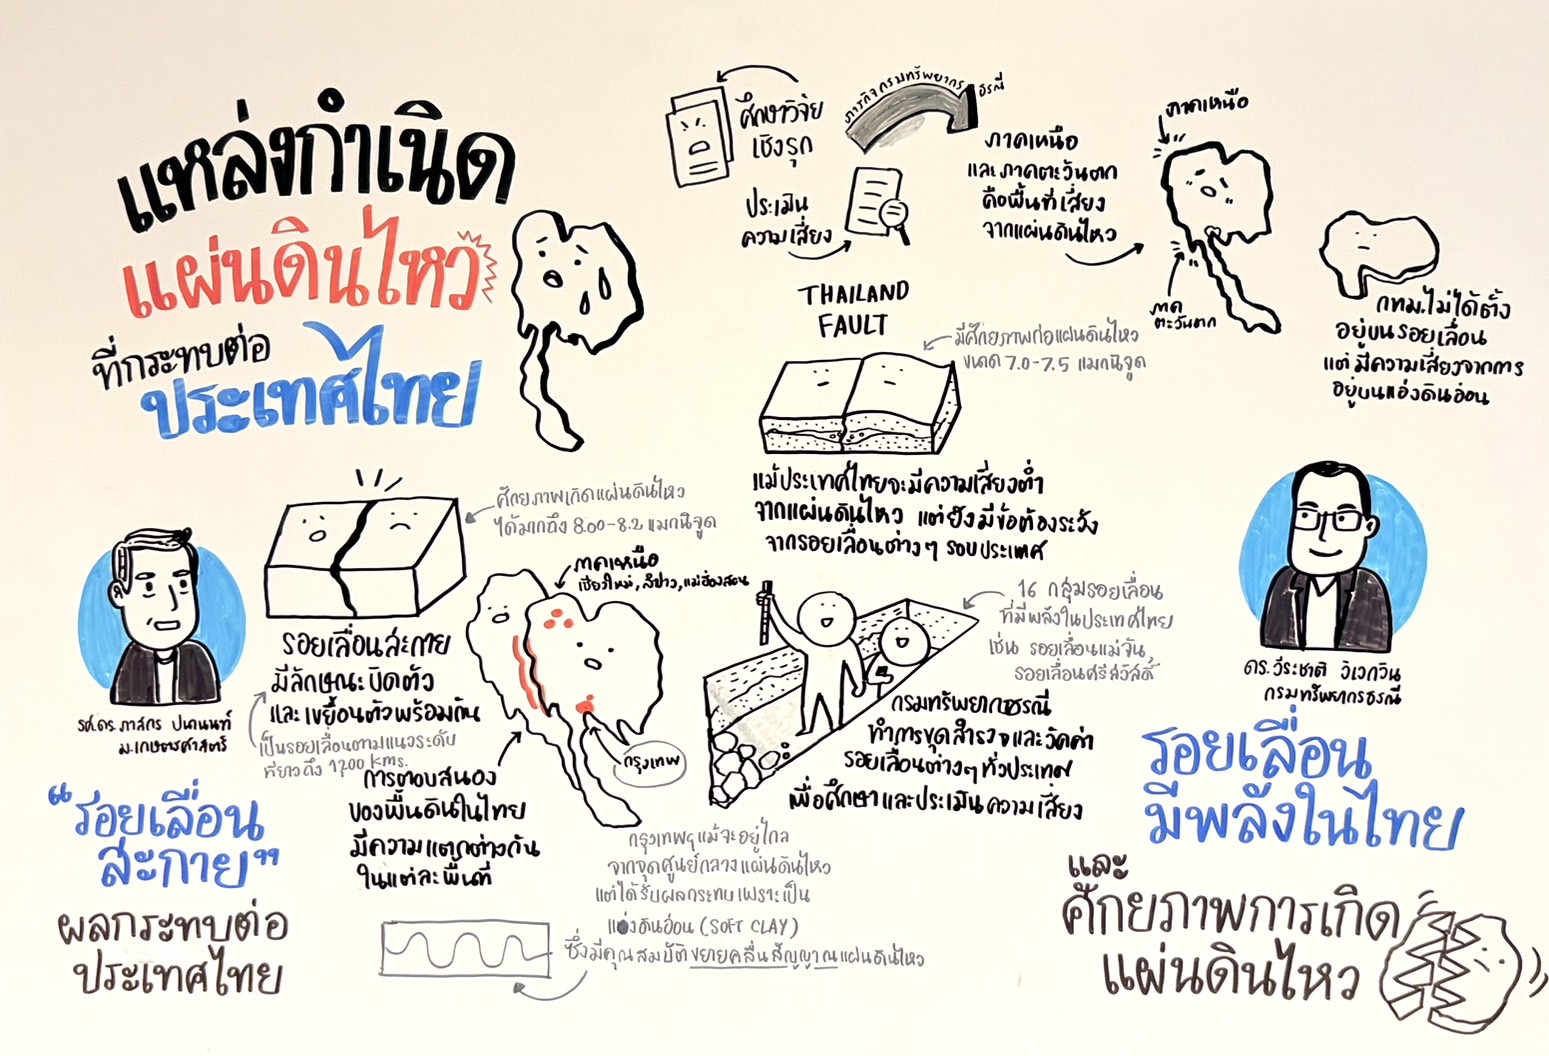 แหล่งกำเนิด
แผ่นดินไหว
ที่กระทบต่อ
ประเทศไทย
ศึกษาวิจัย
เชิงรุก
ประเมิน
ความเสี่ยง
ภารกิจกรมทรัพยากรธรณี
ภาคเหนือ
และภาคตะวันตก
คือพื้นที่เสี่ยง
จากแผ่นดินไหว
ภาคเหนือ
ภาค
ตะวันตก
กทม.ไม่ได้ตั้ง
อยู่บนรอยเลื่อน
แต่มีความเสี่ยงจากการ
อยู่บนแอ่งดินอ่อน
THAILAND
FAULT
มีศักยภาพก่อแผ่นดินไหว
ขนาด 7.0-7.5 แมกนิจูด
แม้ประเทศไทยจะมีความเสี่ยงต่ำ
จากแผ่นดินไหว แต่ยังมีข้อต้องระวัง
จากรอยเลื่อนต่างๆ รอบประเทศ
16 กลุ่มรอยเลื่อน
ที่มีพลังในประเทศไทย
เช่น รอยเลื่อนแม่จัน,
รอยเลื่อนศรีสวัสดิ์
กรมทรัพยากรธรณี
ทำการขุดสำรวจและวัดค่า
รอยเลื่อนต่างๆทั่วประเทศ
เพื่อศึกษาและประเมินความเสี่ยง
ดร.วีระชาติ วิเวกวิน
กรมทรัพยากรธรณี
รอยเลื่อน
มีพลังในไทย
และ
ศักยภาพการเกิด
แผ่นดินไหว
ศักยภาพเกิดแผ่นดินไหว
ได้มากถึง 8.00-8.2 แมกนิจูด
รอยเลื่อนสะกาย
มีลักษณะบิดตัว
และเขยื้อนตัวพร้อมกัน
เป็นรอยเลื่อนตามแนวระดับ
ที่ยาวถึง 1,200 kms.
ภาคเหนือ
เชียงใหม่, ลำปาง, แม่ฮ่องสอน
กรุงเทพ
การตอบสนอง
ของพื้นดินในไทย
มีความแตกต่างกัน
ในแต่ละพื้นที่
กรุงเทพฯแม้จะอยู่ไกล
จากจุดศูนย์กลางแผ่นดินไหว
แต่ได้รับผลกระทบเพราะเป็น
แอ่งดินอ่อน (SOFT CLAY)
ซึ่งมีคุณสมบัติขยายคลื่นสัญญาณแผ่นดินไหว
รศ.ดร.ภาสกร ปนานนท์
ม.เกษตรศาสตร์
"รอยเลื่อน
สะกาย"
ผลกระทบต่อ
ประเทศไทย